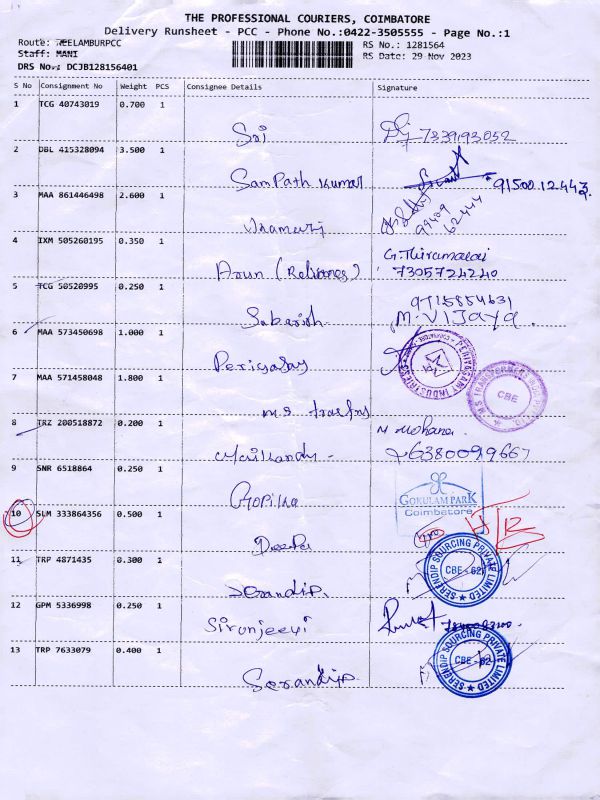 THE PROFESSIONAL COURIERS, COIMBATORE
Delivery Runsheet - PCC - Phone No.:0422-3505555 - Page No.:1
Route: NEELAMBURPCC
Staff: MANI
DRS No.: DCJB128156401
RS No.: 1281564
RS Date: 29 Nov 2023
S No Consignment No Weight PCS Consignee Details Signature
1 TCG 40743019 0.700 1
Sri 7339193052
2 DBL 415328094 3.500 1
Sampath Kumar 91500 12443
3 MAA 861446498 2.600 1
99409
62444
4 IXM 505260195 0.350 1
Arun (Reliance) G.Thirumalai
7305724240
5 TCG 50520995 0.250 1
9715854631
Sabarish M.VIJaya.
6 MAA 573450698 1.000 1
Periyasay
PERIYASAMY INDUSTRIES
7 MAA 571458048 1.800 1
M.S transfrs
CBE
8 TRZ 200518872 0.200 1
M Mohana
6380099667
9 SNR 6518864 0.250 1
Gopika
GOKULAM PARK
Coimbatore
10 SLM 333864356 0.500 1
Deepa
11 TRP 4871435 0.300 1
Serandip.
SERENDIP SOURCING PRIVATE LIMITED
CBE - 62
12 GPM 5336998 0.250 1
Siranjeevi
13 TRP 7633079 0.400 1
Serandip
SERENDIP SOURCING PRIVATE LIMITED
CBE - 62